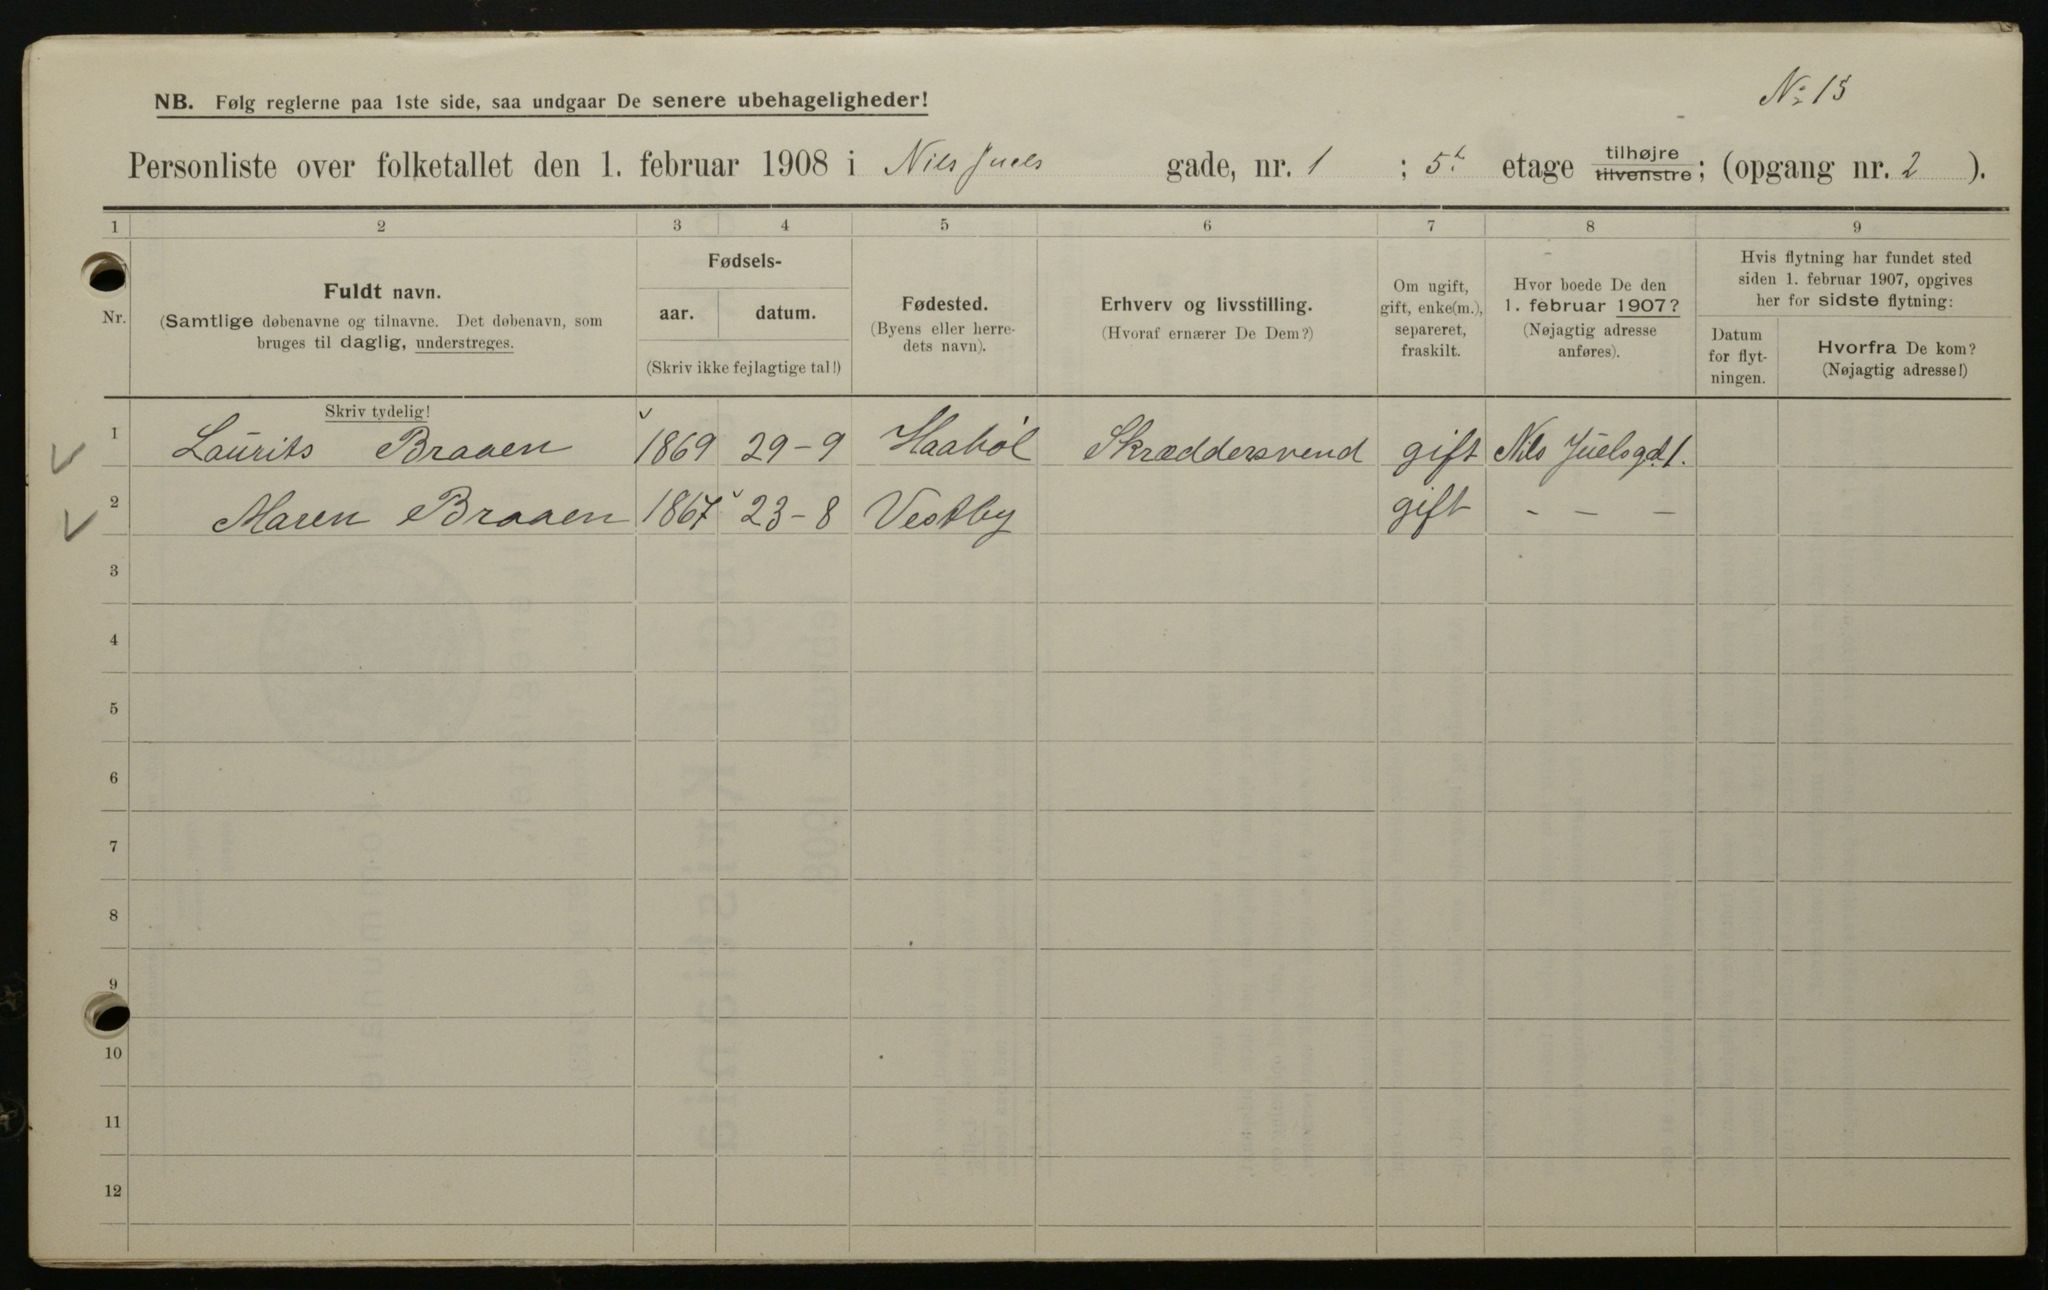 No. 15
NB. Følg reglerne paa 1ste side, saa undgaar De senere ubehageligheder!
Personliste over folketallet den 1. februar 1908 i Nils Juels gade, nr. 1 ; 5t. etage tilhøjre tilvenstre; (opgang nr. 2 ).
1 2 3 4 5 6 7 8 9
Nr.
Fuldt navn.
(Samtlige døbenavne og tilnavne. Det døbenavn, som
bruges til daglig, understreges.
Skriv tydelig!
Fødsels-
aar. datum.
(Skriv ikke fejlagtige tal!)
Fødested.
(Byens eller herre-
dets navn).
Erhverv og livsstilling.
(Hvoraf ernærer De Dem?)
Om ugift,
gift, enke(m.),
separeret,
fraskilt.
Hvor boede De den
1. februar 1907?
(Nøjagtig adresse
anføres).
Hvis flytning har fundet sted
siden 1. februar 1907, opgives
her for sidste flytning:
Datum
for flyt-
ningen.
Hvorfra De kom?
(Nøjagtig adresse!)
1 Laurits Braaen 1869 29-9 Haabøl Skræddersvend gift Nils Juelsgd. 1.
2 Maren Braaen 1867 23-8 Vestby gift - - -
3
4
5
6
7
8
9
10
11
12